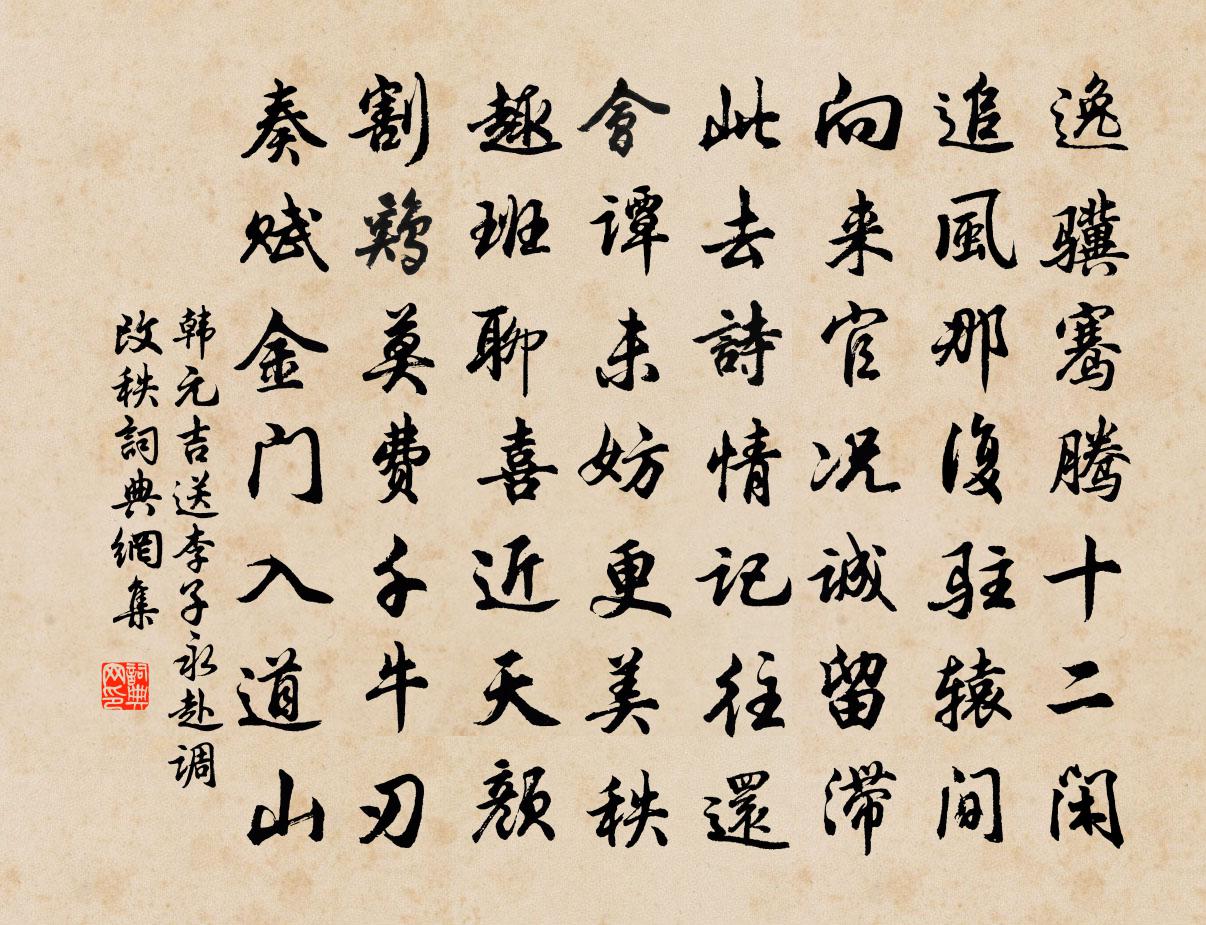 逸骥騫腾十二闲
追風那復驻辕间
向来官况诚留滞
此去詩情记往還
會谭未妨更美秩
趣班聊喜近天颜
割鷄莫费千牛刃
奏赋金门入道山
韩元吉送李子永赴调
改秩詞典網集
詞典网印